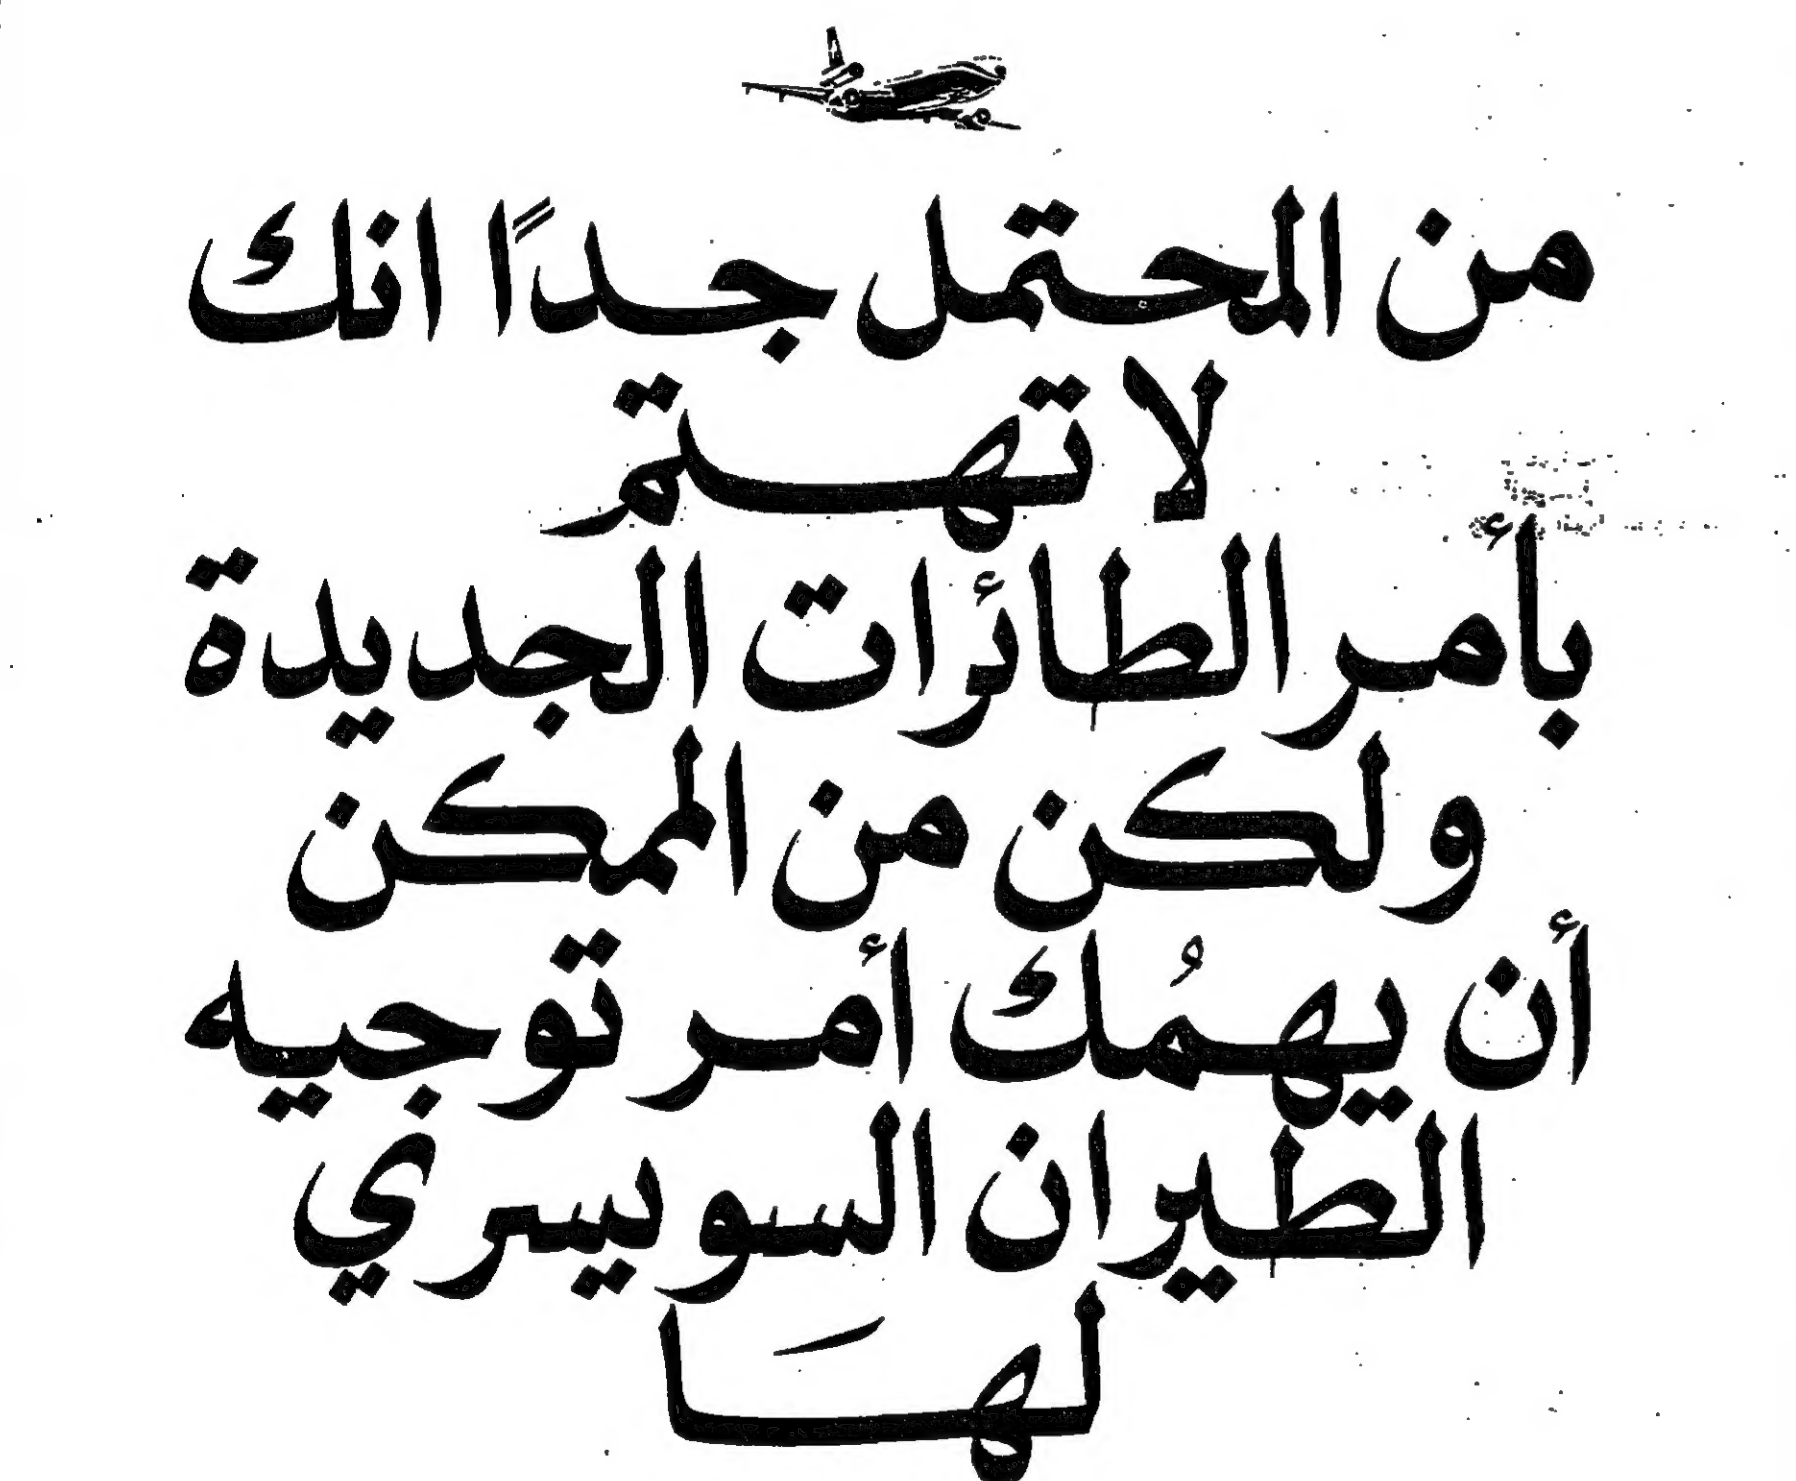 من المحتمل جداً انك
لا تهتم
بأمر الطائرات الجديدة
ولكن من الممكن
أن يهمُك أمر توجيه
الطيران السويسري
لهَا